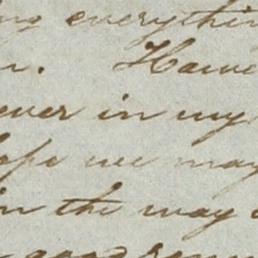 everythin
Have
ever in my
hope we may
in the way
good